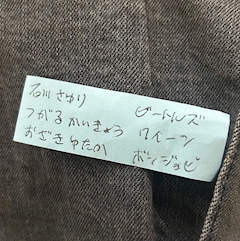 石川さゆり
つがるかいきょう
おざきゆたか
ビートルズ
クイーン
ボンジョビ